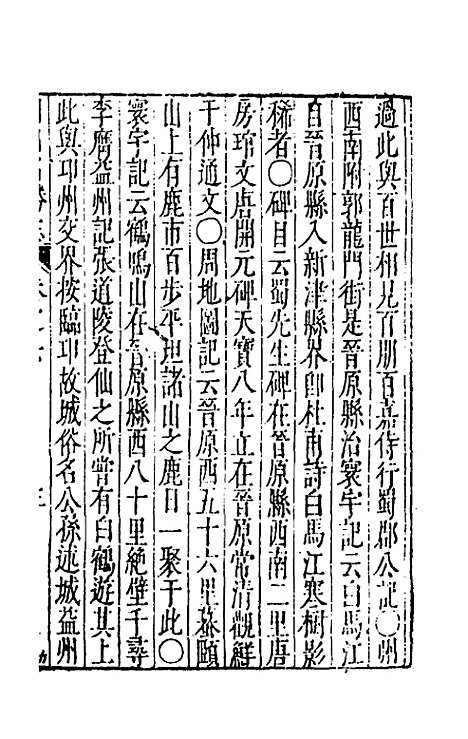 過此與百世相見百朋百嘉侍行蜀郡公記〇州
西南附郭龍門街是晉原縣治寰宇記云白馬江
自晉原縣入新津縣界卽杜甫詩白馬江寒樹影
稀者〇碑目云蜀先生碑在晉原縣西南二里唐
房琯文唐開元碑天寶八年立在晉原常清觀鮮
于仲通文〇周地圖記云晉原西五十六里
山上有鹿市百步平坦諸山之鹿日一聚于此〇
寰宇記云鶴鳴山在晉原縣西八十里絶壁千尋
李膺益州記張道陵登仙之所嘗有白鶴遊其上
此與邛州交界按臨邛故城俗名公孫述城益州